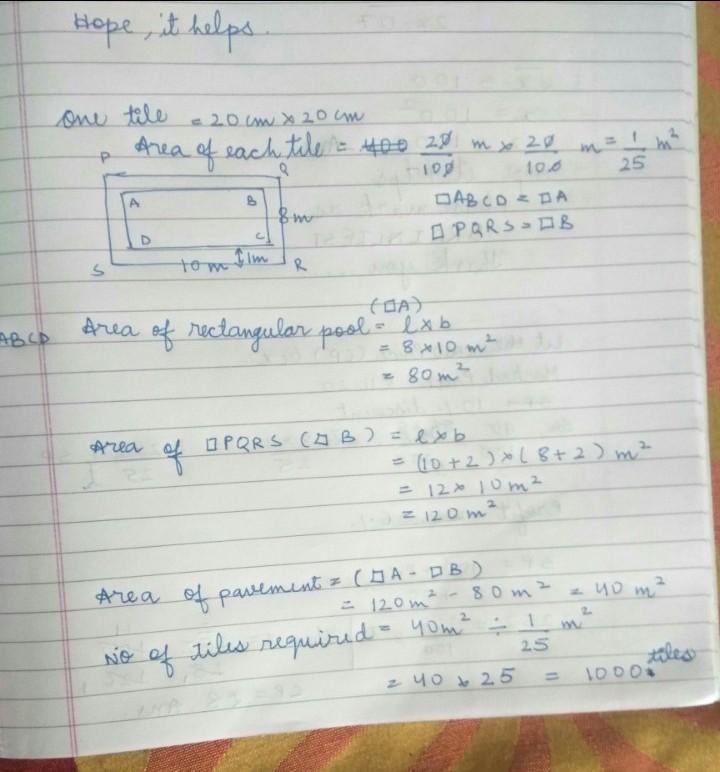 Hope, it helps.
One tile = 20 cm × 20 cm
Area of each tile = 400 20/100 m × 20/100 m = 1/25 m²
P Q
A B
8m
D C
1m
S 10 m R
□ABCD = □A
□PQRS = □B
(□A)
ABCD Area of rectangular pool = l × b
= 8 × 10 m²
= 80 m²
Area of □PQRS (□B) = l × b
= (10 + 2) × (8 + 2) m²
= 12 × 10 m²
= 120 m²
Area of pavement = (□A - □B)
= 120 m² - 80 m² = 40 m²
No of tiles required = 40 m² ÷ 1/25 m²
= 40 × 25 = 1000 tiles